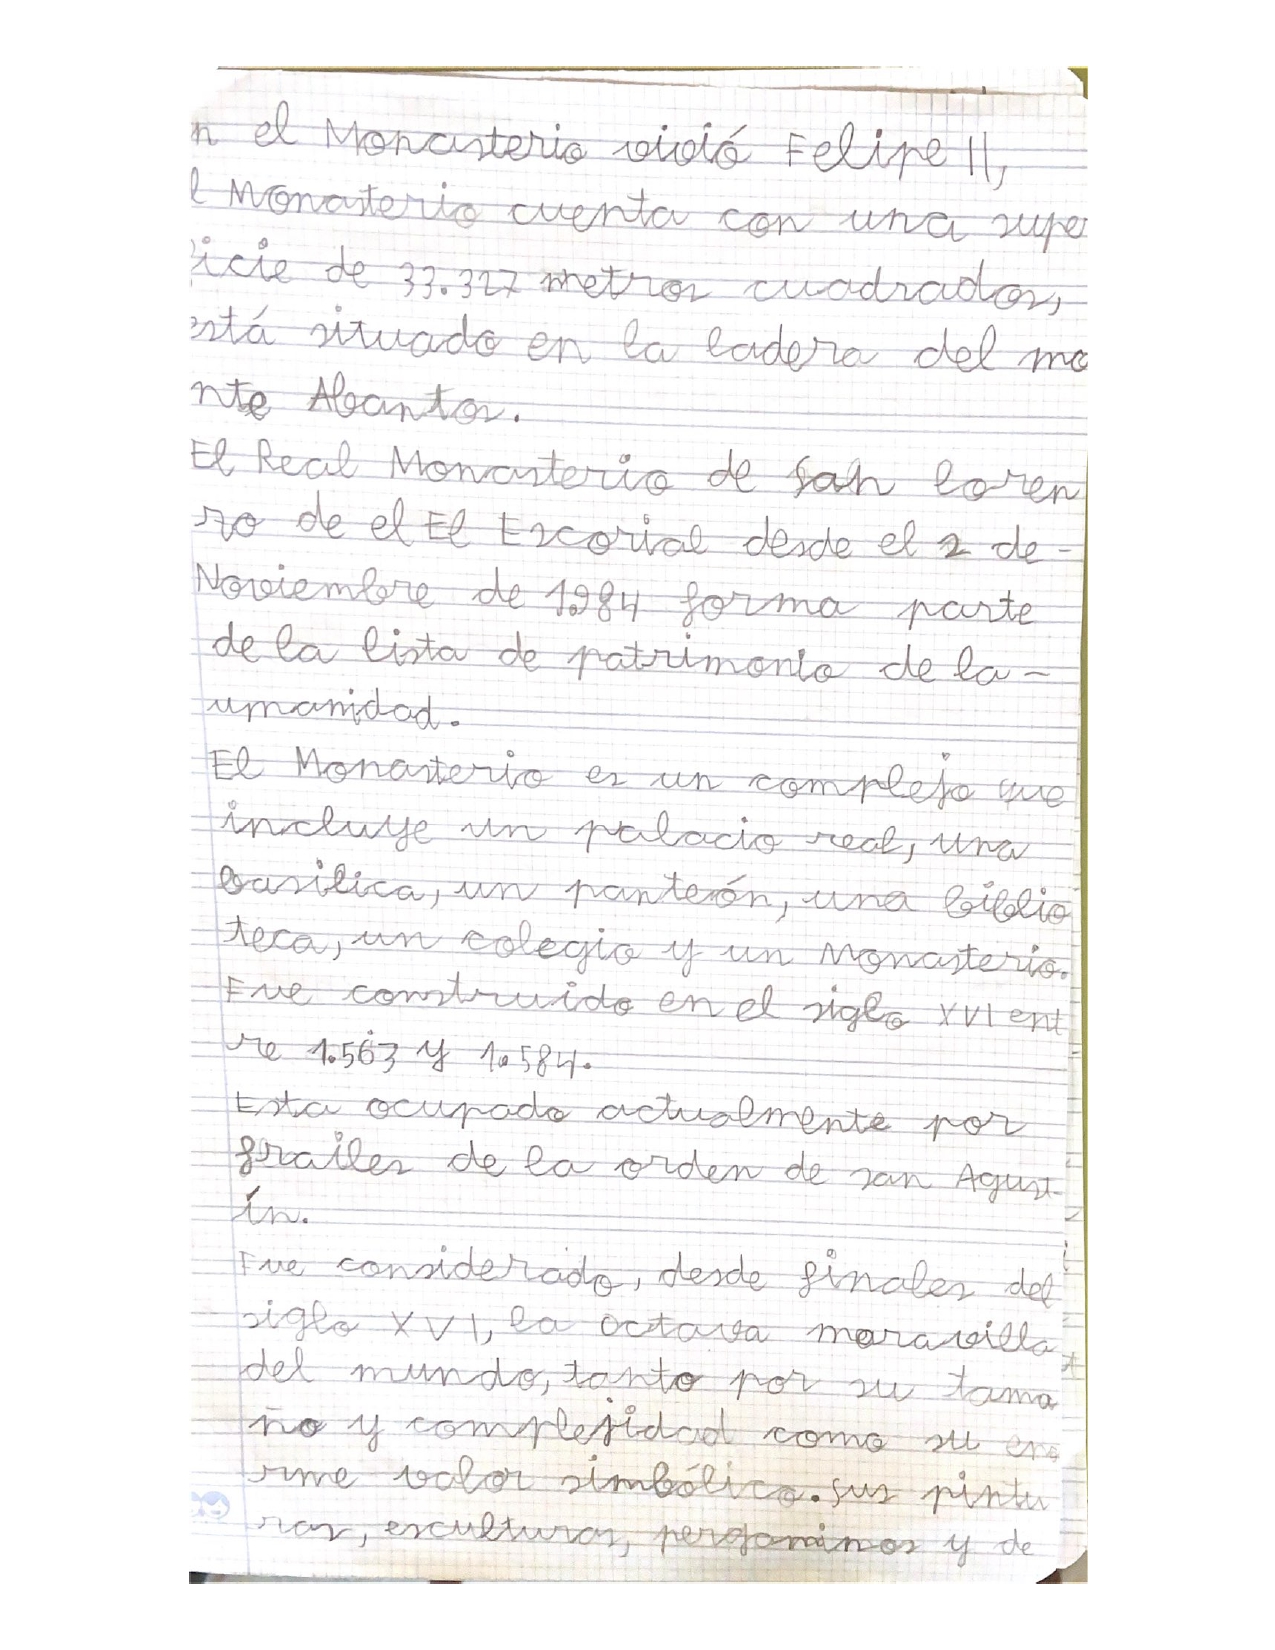 n el Monasterio vivió Felipe II,
l Monasterio cuenta con una supe
icie de 33.327 metros cuadrados,
está situado en la ladera del mo
nte Abantos.
El Real Monasterio de San loren
zo de el El Escorial desde el 2 de-
Noviembre de 1.984 forma parte
de la lista de patrimonio de la-
umanidad.
El Monasterio es un complejo que
incluye un palacio real, una
basilica, un panteón, una biblio
teca, un colegio y un Monasterio.
Fue construido en el siglo XVI ent
re 1.563 y 1.584.
Esta ocupado actualmente por
frailes de la orden de san Agust-
ín.
Fue considerado, desde finales del
siglo XVI, la octava maravilla
del mundo, tanto por su tama
ño y complejidad como su eno
rme valor simbólico. Sus pintu
ras, esculturas, pergaminos y de